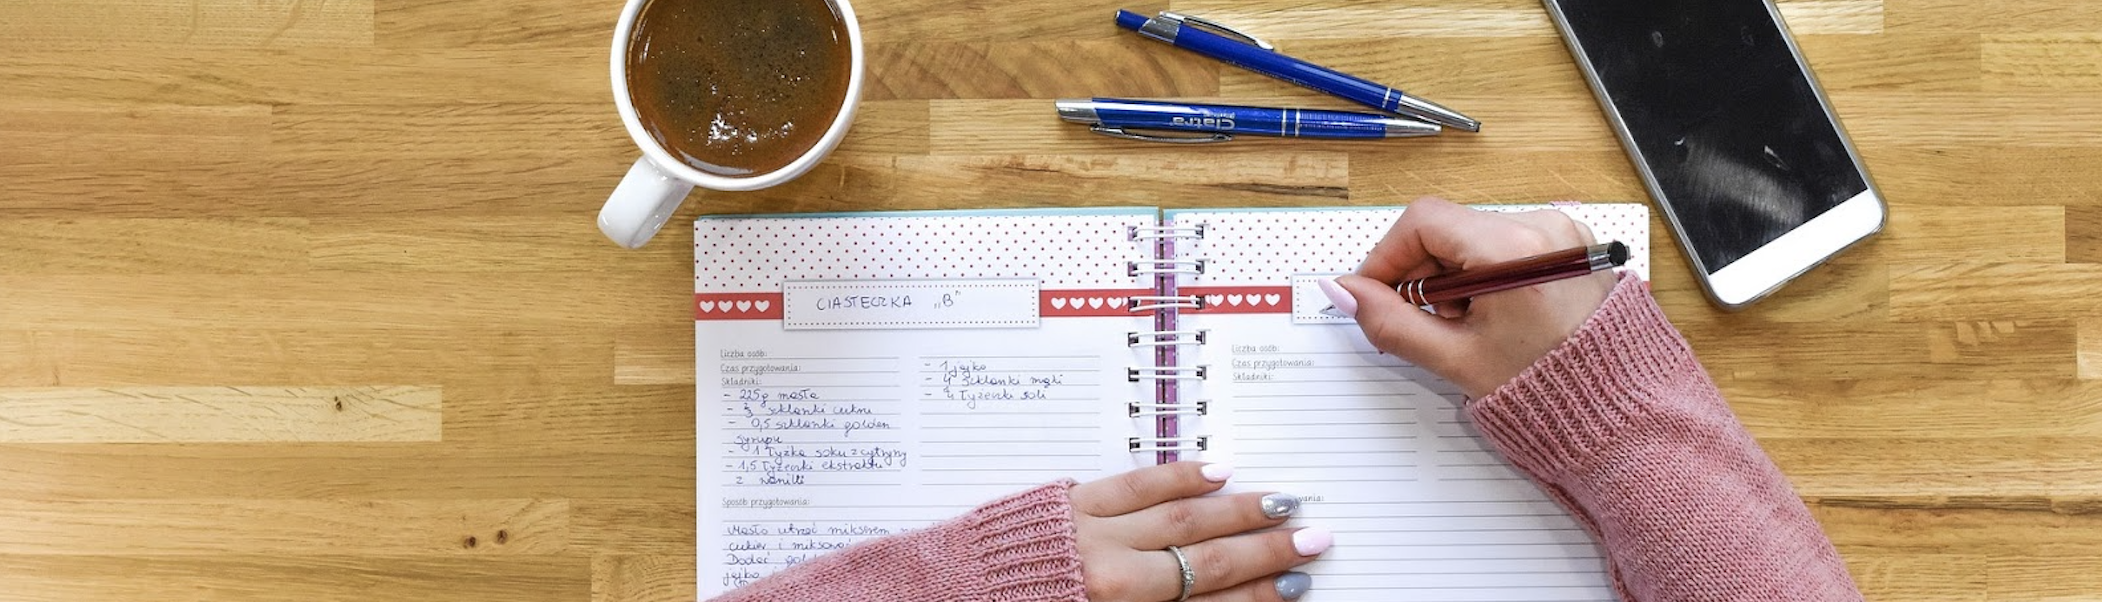 Ciatra
CIASTECZKA „B"
Liczba osób:
Czas przygotowania:
Składniki:
- 225g masła
- szklanki cukru
- 0,5 szklanki golden
syropu
- 1 łyżka soku z cytryny
- 1,5 łyżeczki ekstraktu
z wanilii
- 1 jajko
- 4 szklanki mąki
- łyżeczki soli
Sposób przygotowania:
Masło utrzeć mikserem
cukier i miksować
Dodać
jajko
Liczba osób:
Czas przygotowania:
Składniki: